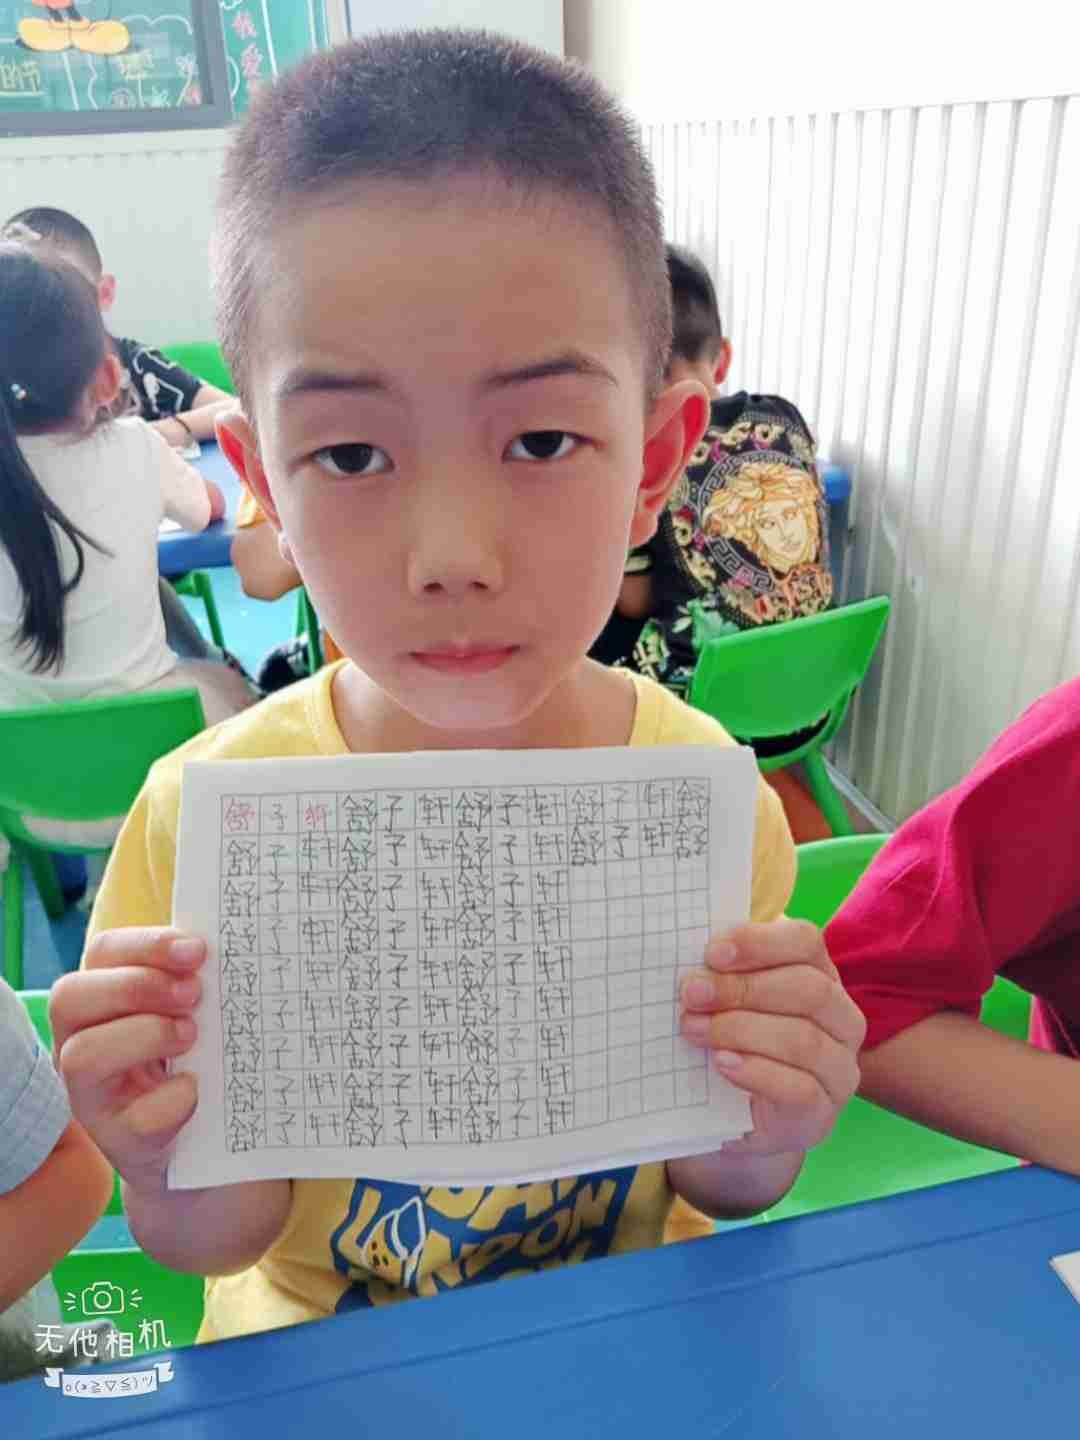 我
爱
的节
舒子轩舒子轩舒子轩舒子轩舒
舒子轩舒子轩舒子轩舒子轩舒
舒子轩舒子轩舒子轩
舒子轩舒子轩舒子轩
舒子轩舒子轩舒子轩
舒子轩舒子轩舒子轩
舒子轩舒子轩舒子轩
舒子轩舒子轩舒子轩
舒子轩舒子轩舒子轩
无他相机